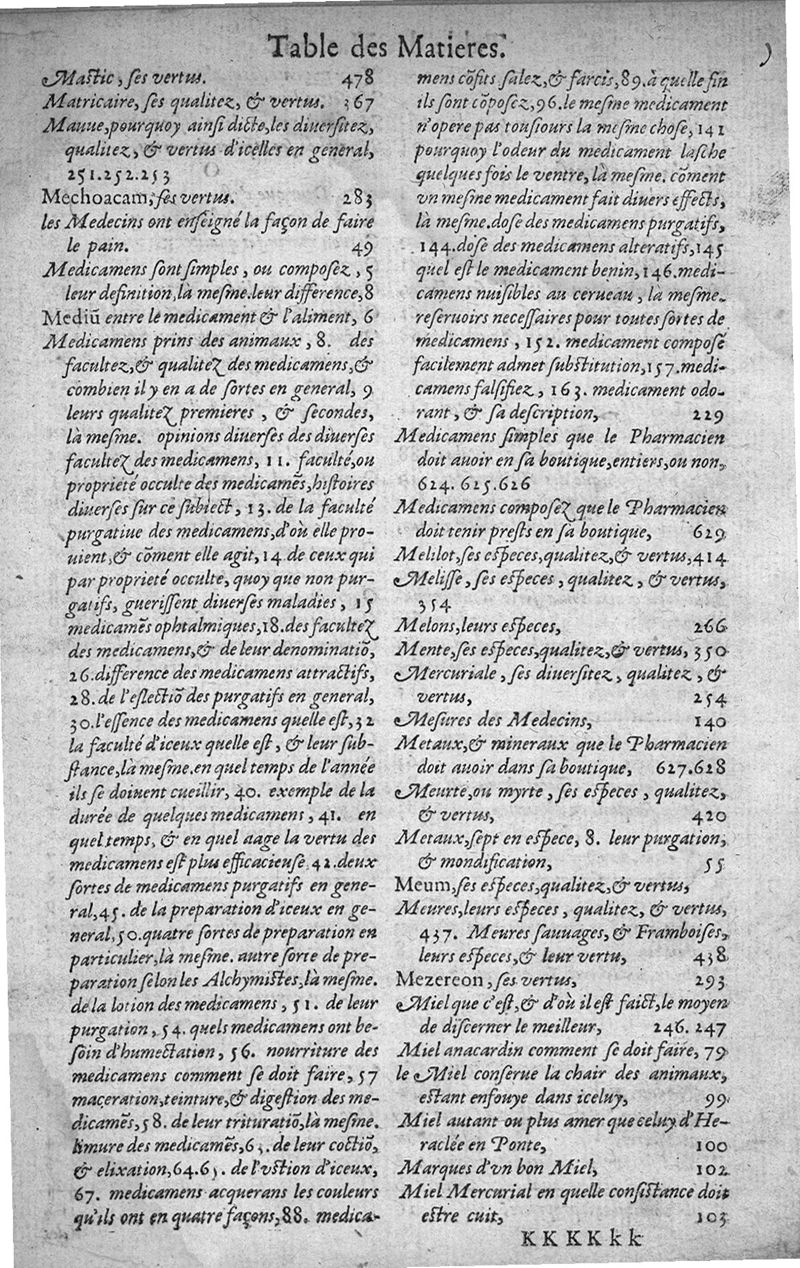 Table des Matieres.
Mastic, ses vertus. 478
Matricaire, ses qualitez, & vertus. 367
Mauue, pourquoy ainsi dicte, les diuersitez,
qualitez, & vertus d'icelles en general,
251.252.253
Mechoacam, ses vertus. 283
les Medecins ont enseigné la façon de faire
le pain. 49
Medicamens sont simples, ou composez, 5
leur definition, là mesme. leur difference, 8
Mediũ entre le medicament & l'aliment, 6
Medicamens prins des animaux, 8. des
facultez, & qualitez des medicamens, &
combien il y en a de sortes en general, 9
leurs qualitez premieres, & secondes,
là mesme. opinions diuerses des diuerses
facultez des medicamens, 11. faculté, ou
proprieté occulte des medicamẽs, histoires
diuerses sur ce subiect, 13. de la faculté
purgatiue des medicamens, d'où elle pro-
uient, & cõment elle agit, 14. de ceux qui
par proprieté occulte, quoy que non pur-
gatifs, guerissent diuerses maladies, 15
medicamẽs ophtalmiques, 18. des facultez
des medicamens, & de leur denominatiõ,
26. difference des medicamens attractifs,
28. de l'eslectiõ des purgatifs en general,
30. l'essence des medicamens quelle est, 32
la faculté d'iceux quelle est, & leur sub-
stance, là mesme. en quel temps de l'année
ils se doiuent cueillir, 40. exemple de la
durée de quelques medicamens, 41. en
quel temps, & en quel aage la vertu des
medicamens est plus efficacieuse, 42. deux
sortes de medicamens purgatifs en gene-
ral, 45. de la preparation d'iceux en ge-
neral, 50. quatre sortes de preparation en
particulier, là mesme. autre sorte de pre-
paration selon les Alchymistes, là mesme.
de la lotion des medicamens, 51. de leur
purgation, 54. quels medicamens ont be-
soin d'humectation, 56. nourriture des
medicamens comment se doit faire, 57
maceration, teinture, & digestion des me-
dicamẽs, 58. de leur trituratiõ, là mesme.
limure des medicamẽs, de leur coctiõ,
& elixation, 64. de l'vstion d'iceux,
67. medicamens acquerans les couleurs
qu'ils ont en quatre façons, 88. medica-
mens cõfits salez, & farcis, 89. à quelle fin
ils sont cõposez, 96. le mesme medicament
n'opere pas tousiours la mesme chose, 141
pourquoy l'odeur du medicament lasche
quelques fois le ventre, là mesme. cõment
vn mesme medicament fait diuers effects,
là mesme. dose des medicamens purgatifs,
144. dose des medicamens alteratifs, 145
quel est le medicament benin, 146. medi-
camens nuisibles au cerueau, là mesme.
reseruoirs necessaires pour toutes sortes de
medicamens, 152. medicament composé
facilement admet substitution, 157. medi-
camens falsifiez, 163. medicament odo-
rant, & sa description, 229
Medicamens simples que le Pharmacien
doit auoir en sa boutique, entiers, ou non,
624. 625. 626
Medicamens composez que le Pharmacien
doit tenir prests en sa boutique, 629
Melilot, ses especes, qualitez, & vertus, 414
Melisse, ses especes, qualitez, & vertus,
354
Melons, leurs especes, 266
Mente, ses especes, qualitez, & vertus, 350
Mercuriale, ses diuersitez, qualitez, &
vertus, 254
Mesures des Medecins, 140
Metaux, & mineraux que le Pharmacien
doit auoir dans sa boutique, 627.628
Meurte, ou myrte, ses especes, qualitez,
& vertus, 420
Metaux, sept en espece, 8. leur purgation,
& mondification, 55
Meum, ses especes, qualitez, & vertus,
Meures, leurs especes, qualitez, & vertus,
437. Meures sauuages, & Framboises,
leurs especes, & leur vertu, 438
Mezereon, ses vertus, 293
Miel que c'est, & d'où il est faict, le moyen
de discerner le meilleur, 246. 247
Miel anacardin comment se doit faire, 79
le Miel conserue la chair des animaux,
estant enfouye dans iceluy, 99
Miel autant ou plus amer que celuy d'He-
raclée en Ponte, 100
Marques d'vn bon Miel, 102
Miel Mercurial en quelle consistance doit
estre cuit, 103
KKKKkk